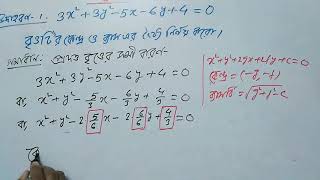 উদাহরণ - 1. 3x² + 3y² - 5x - 6y + 4 = 0
বৃত্তটির কেন্দ্র ও ব্যাসার্ধের দৈর্ঘ্য নির্ণয় করো।
সমাধান:- প্রদত্ত বৃত্তের সমীকরণ-
3x² + 3y² - 5x - 6y + 4 = 0
বা, x² + y² - 5/3 x - 6/3 y + 4/3 = 0
বা, x² + y² - 2 5/6 x - 2 6/6 y + 4/3 = 0
x² + y² + 2gx + 2fy + c = 0
কেন্দ্র = (-g, -f)
ব্যাসার্ধ = √g² + f² - c